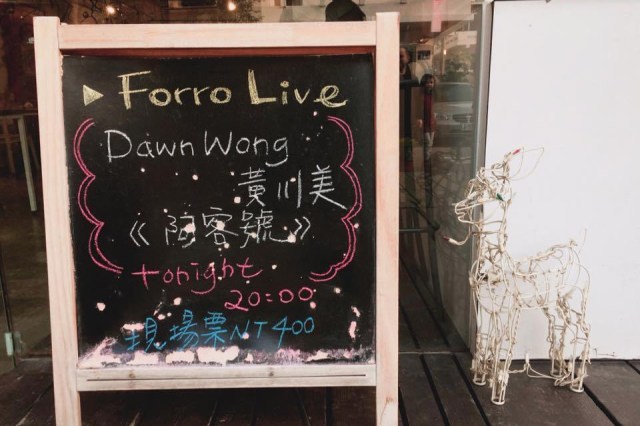 ▸ Forro Live
Dawn Wong
黃川美
《阿客號》
tonight
20:00
現場票NT400